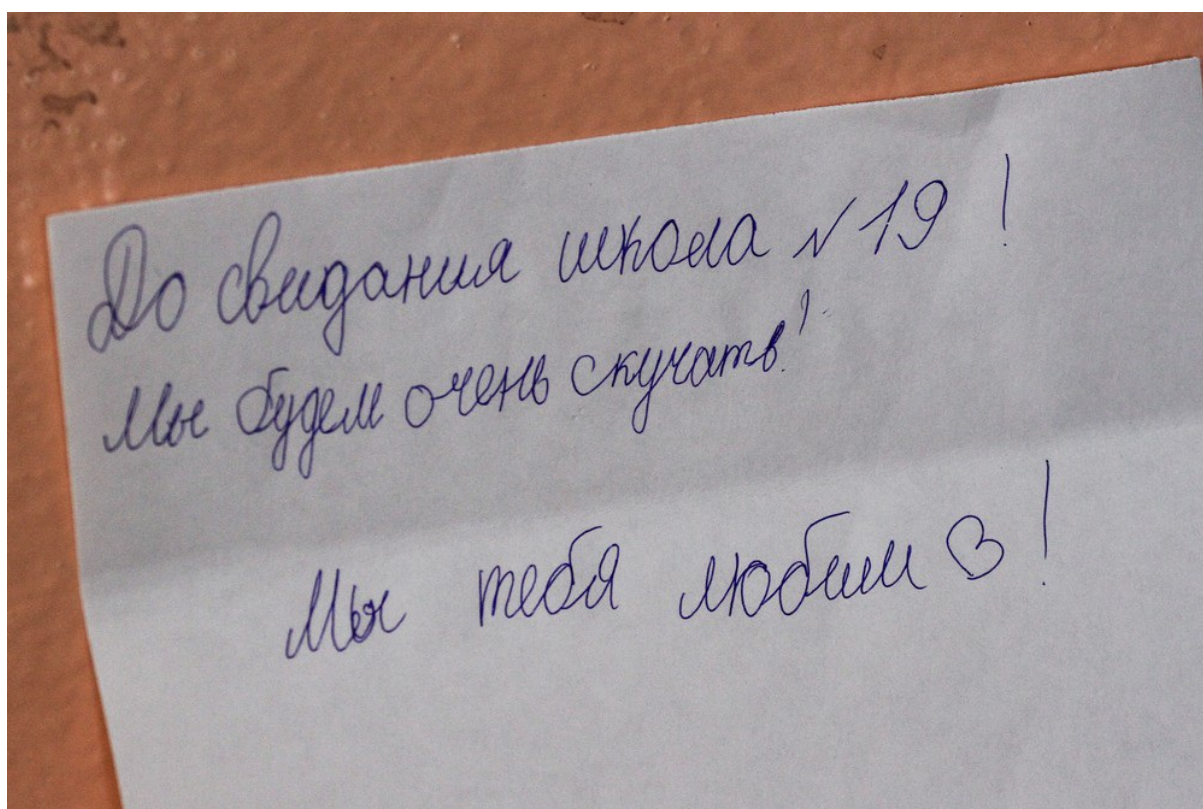 До свидания школа №19!
Мы будем очень скучать!
Мы тебя любим!